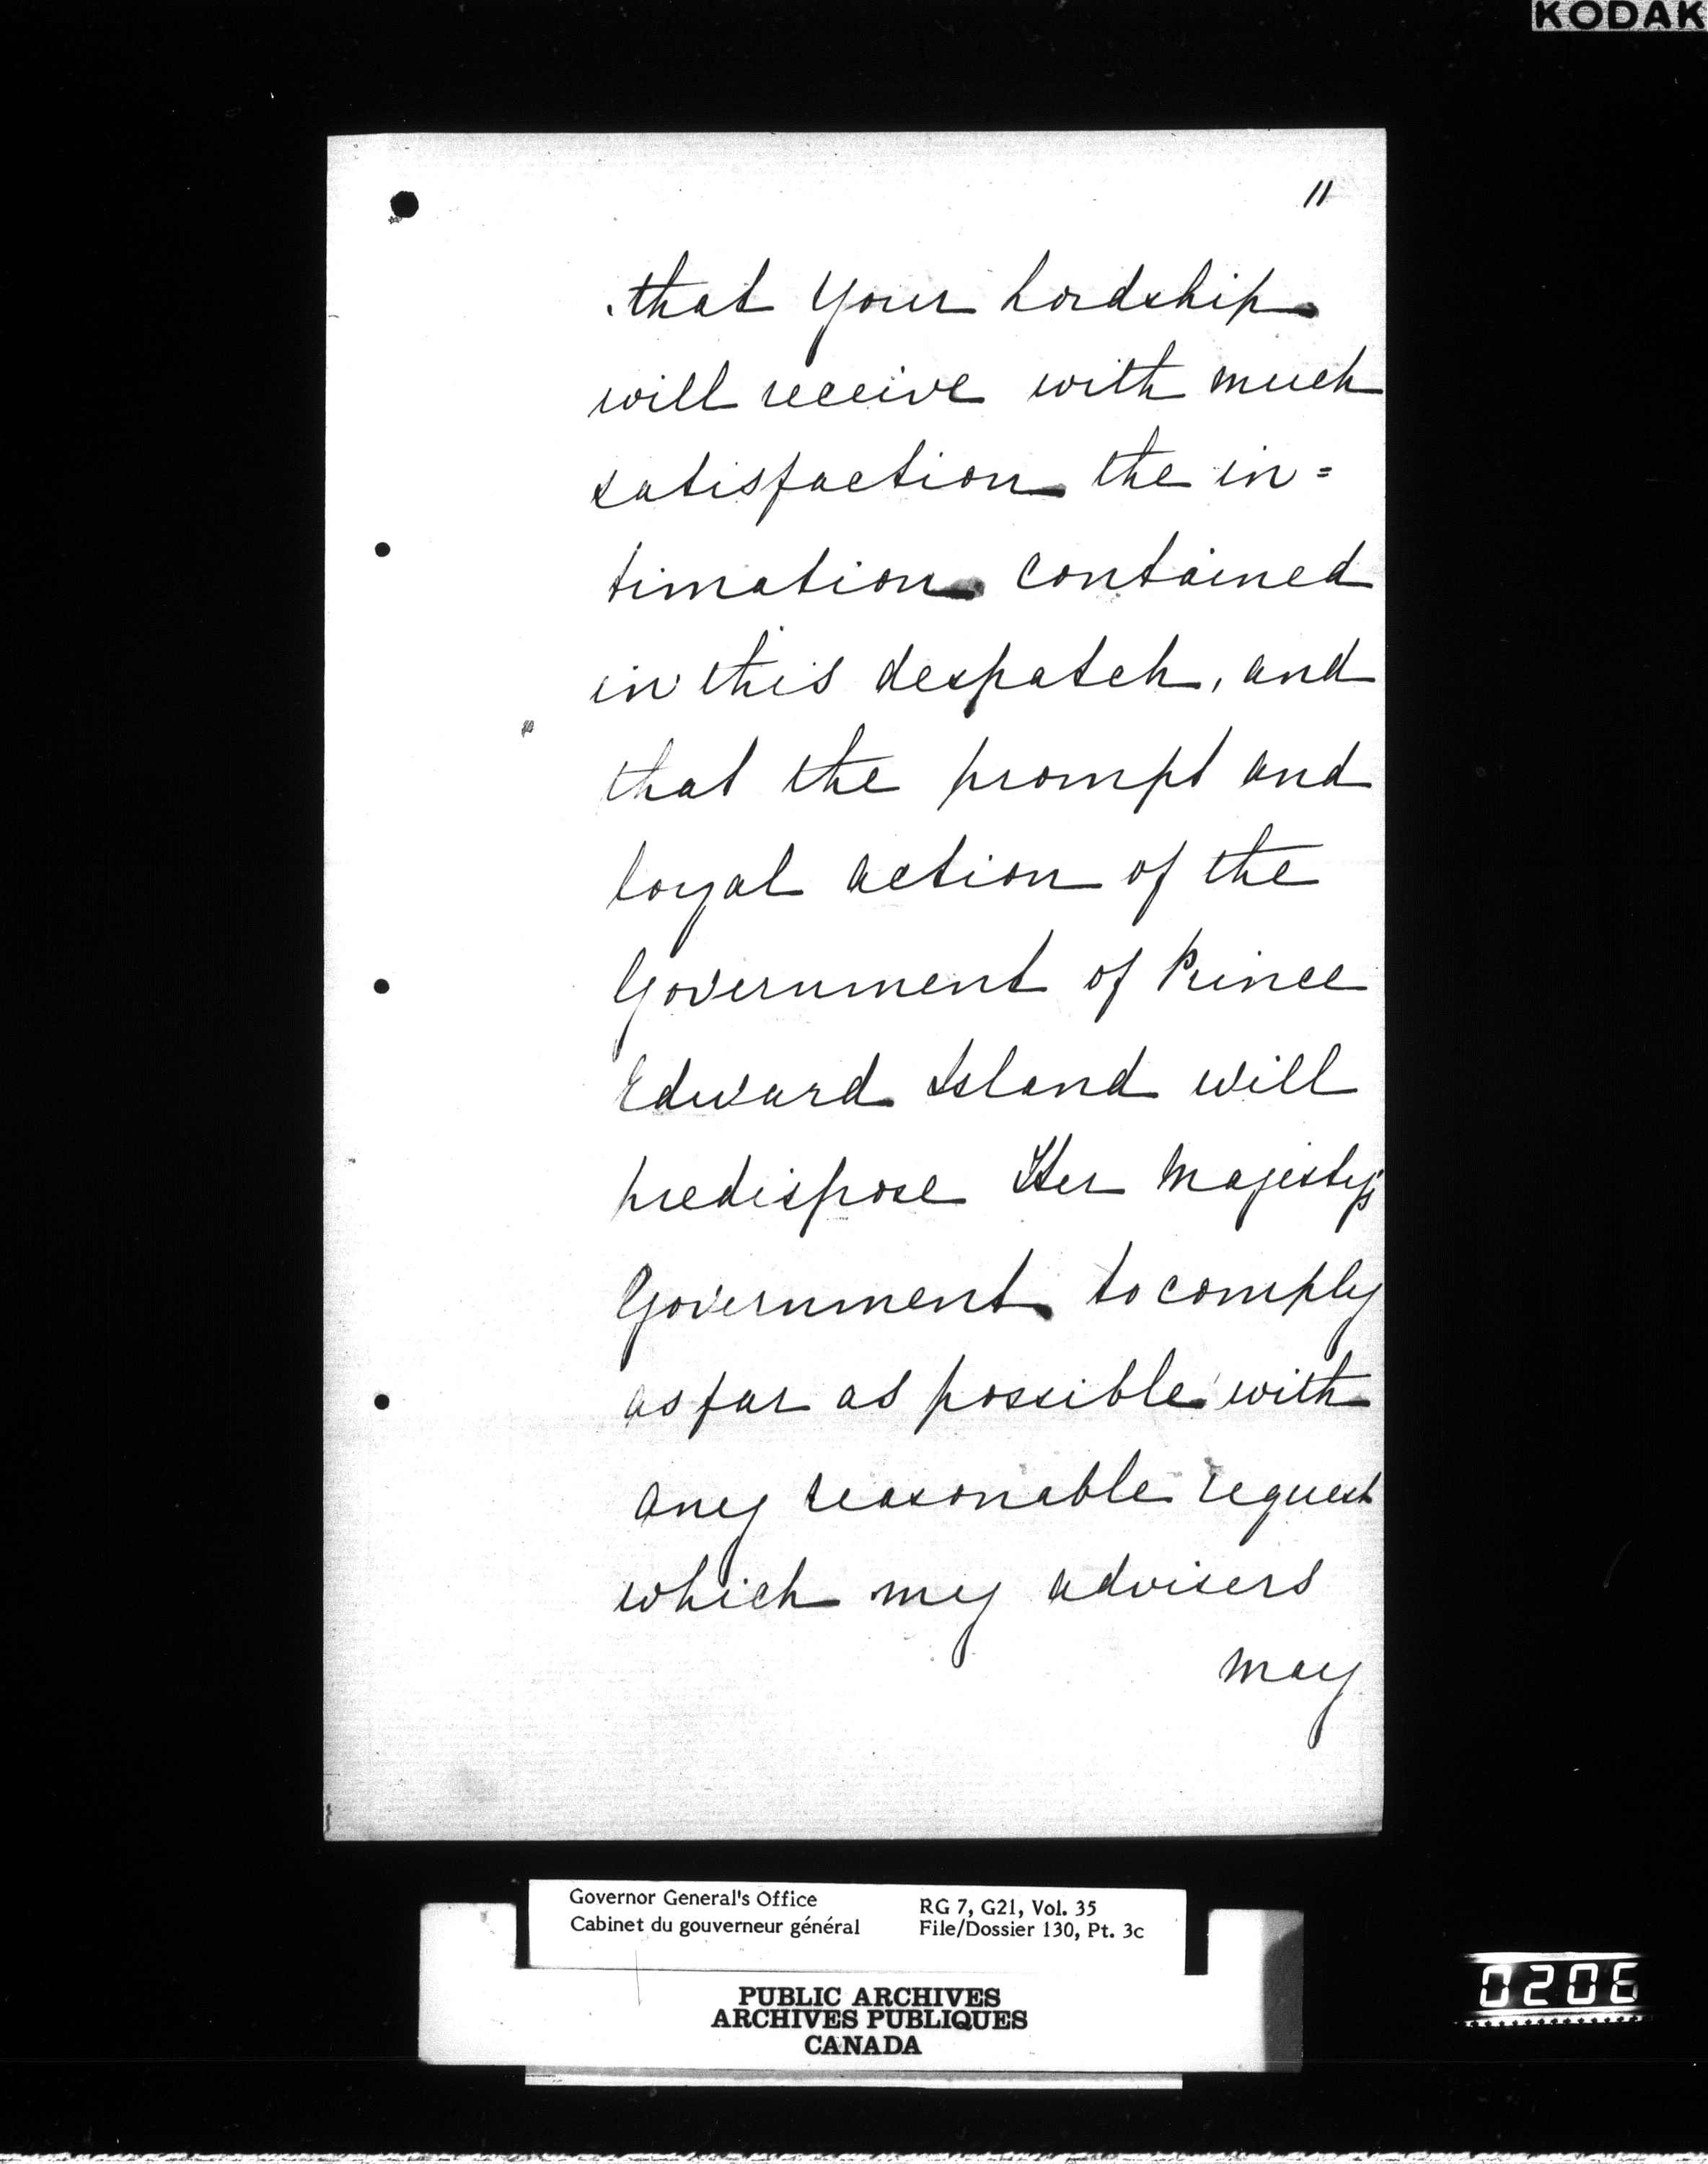 KODAK
11
that Your Lordship
will receive with much
satisfaction the in=
timation contained
in this despatch, and
that the prompt and
loyal action of the
Government of Prince
Edward Island will
predispose Her Majesty's
Government to comply
as far as possible with
any reasonable request
which my advisers
may
Governor General's Office
Cabinet du gouverneur général
RG 7, G21, Vol. 35
File/Dossier 130, Pt. 3c
PUBLIC ARCHIVES
ARCHIVES PUBLIQUES
CANADA